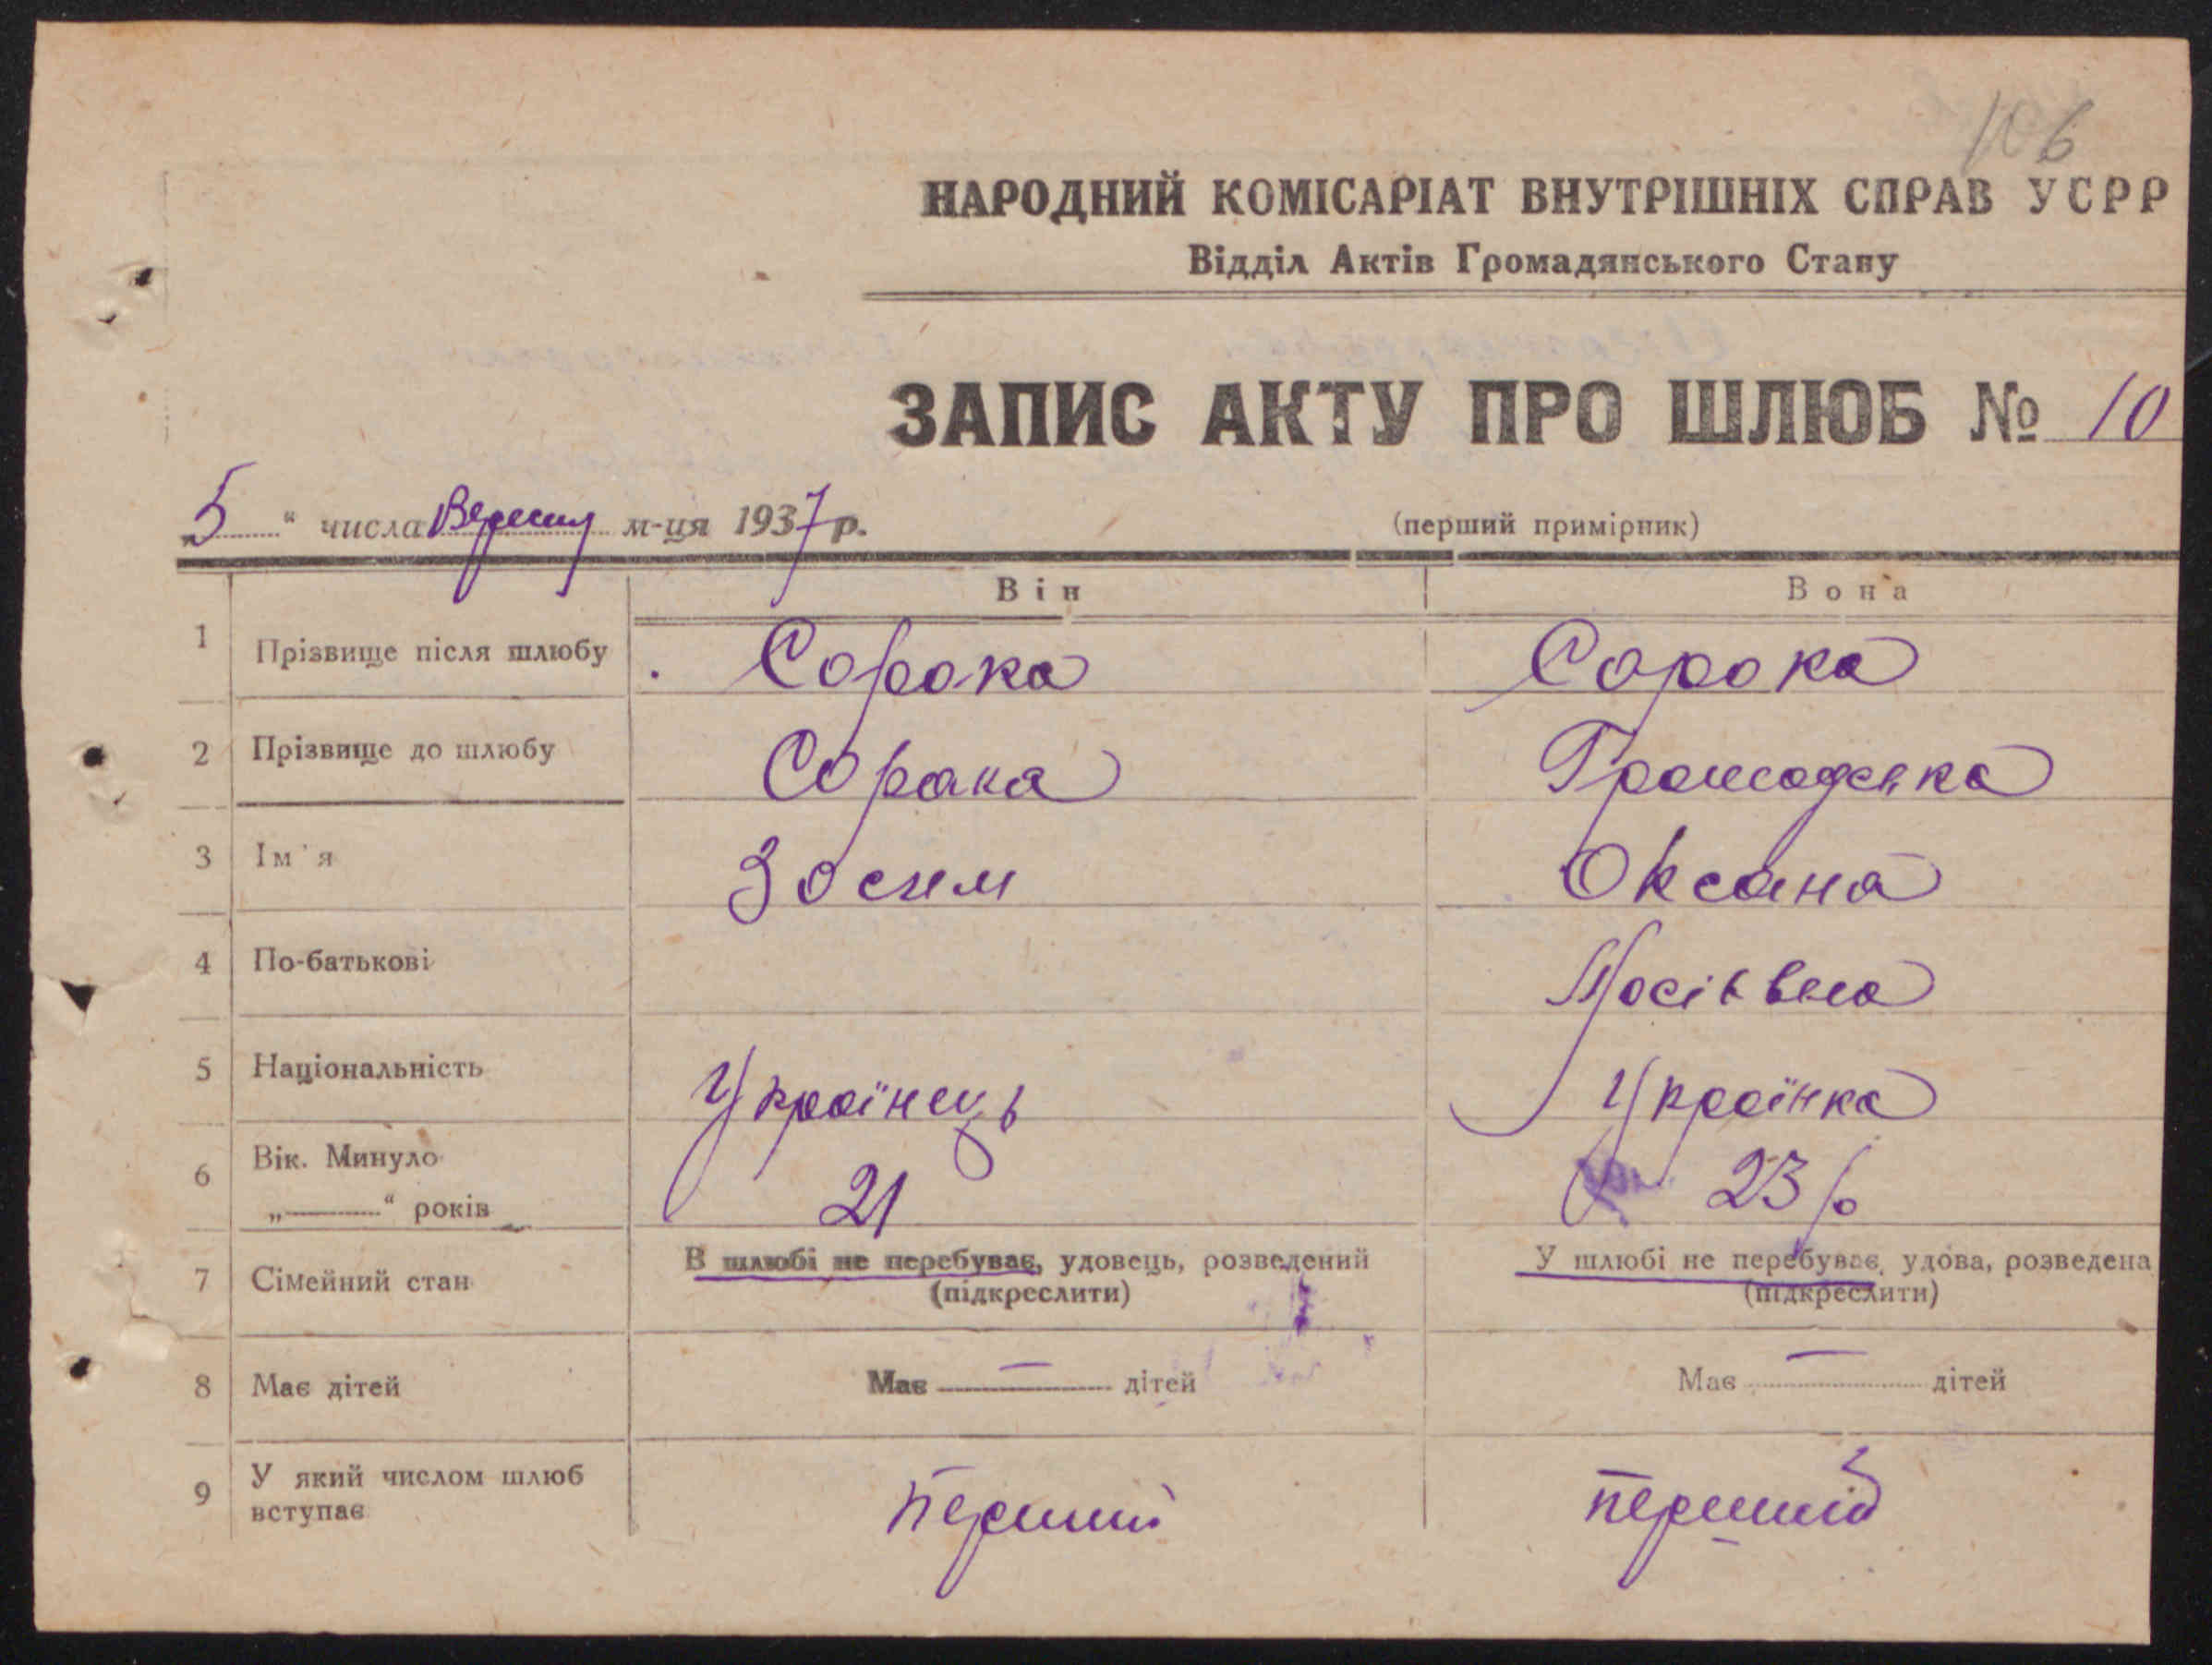 106
НАРОДНИЙ КОМІСАРІАТ ВНУТРІШНІХ СПРАВ УСРР
Відділ Актів Громадянського Стану
ЗАПИС АКТУ ПРО ШЛЮБ № 10
„5“ числа Вересня м-ця 1937 р.
(перший примірник)
Він Вона
1 Прізвище після шлюбу Сорока Сорока
2 Прізвище до шлюбу Сорока Громадська
3 Ім'я Зосим Оксана
4 По-батькові
5 Національність Українець Українка
6 Вік. Минуло
„——“ років 21 23 р
7 Сімейний стан В шлюбі не перебуває, удовець, розведений У шлюбі не перебуває, удова, розведена
(підкреслити) (підкреслити)
8 Має дітей Має — дітей Має — дітей
9 У який числом шлюб
вступає перший перший